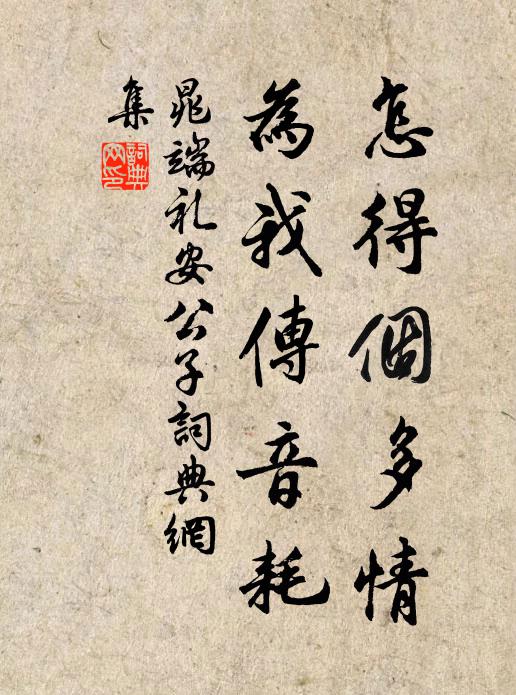 怎得個多情
為我傳音耗
晁端礼安公子詞典網
集
詞典網印